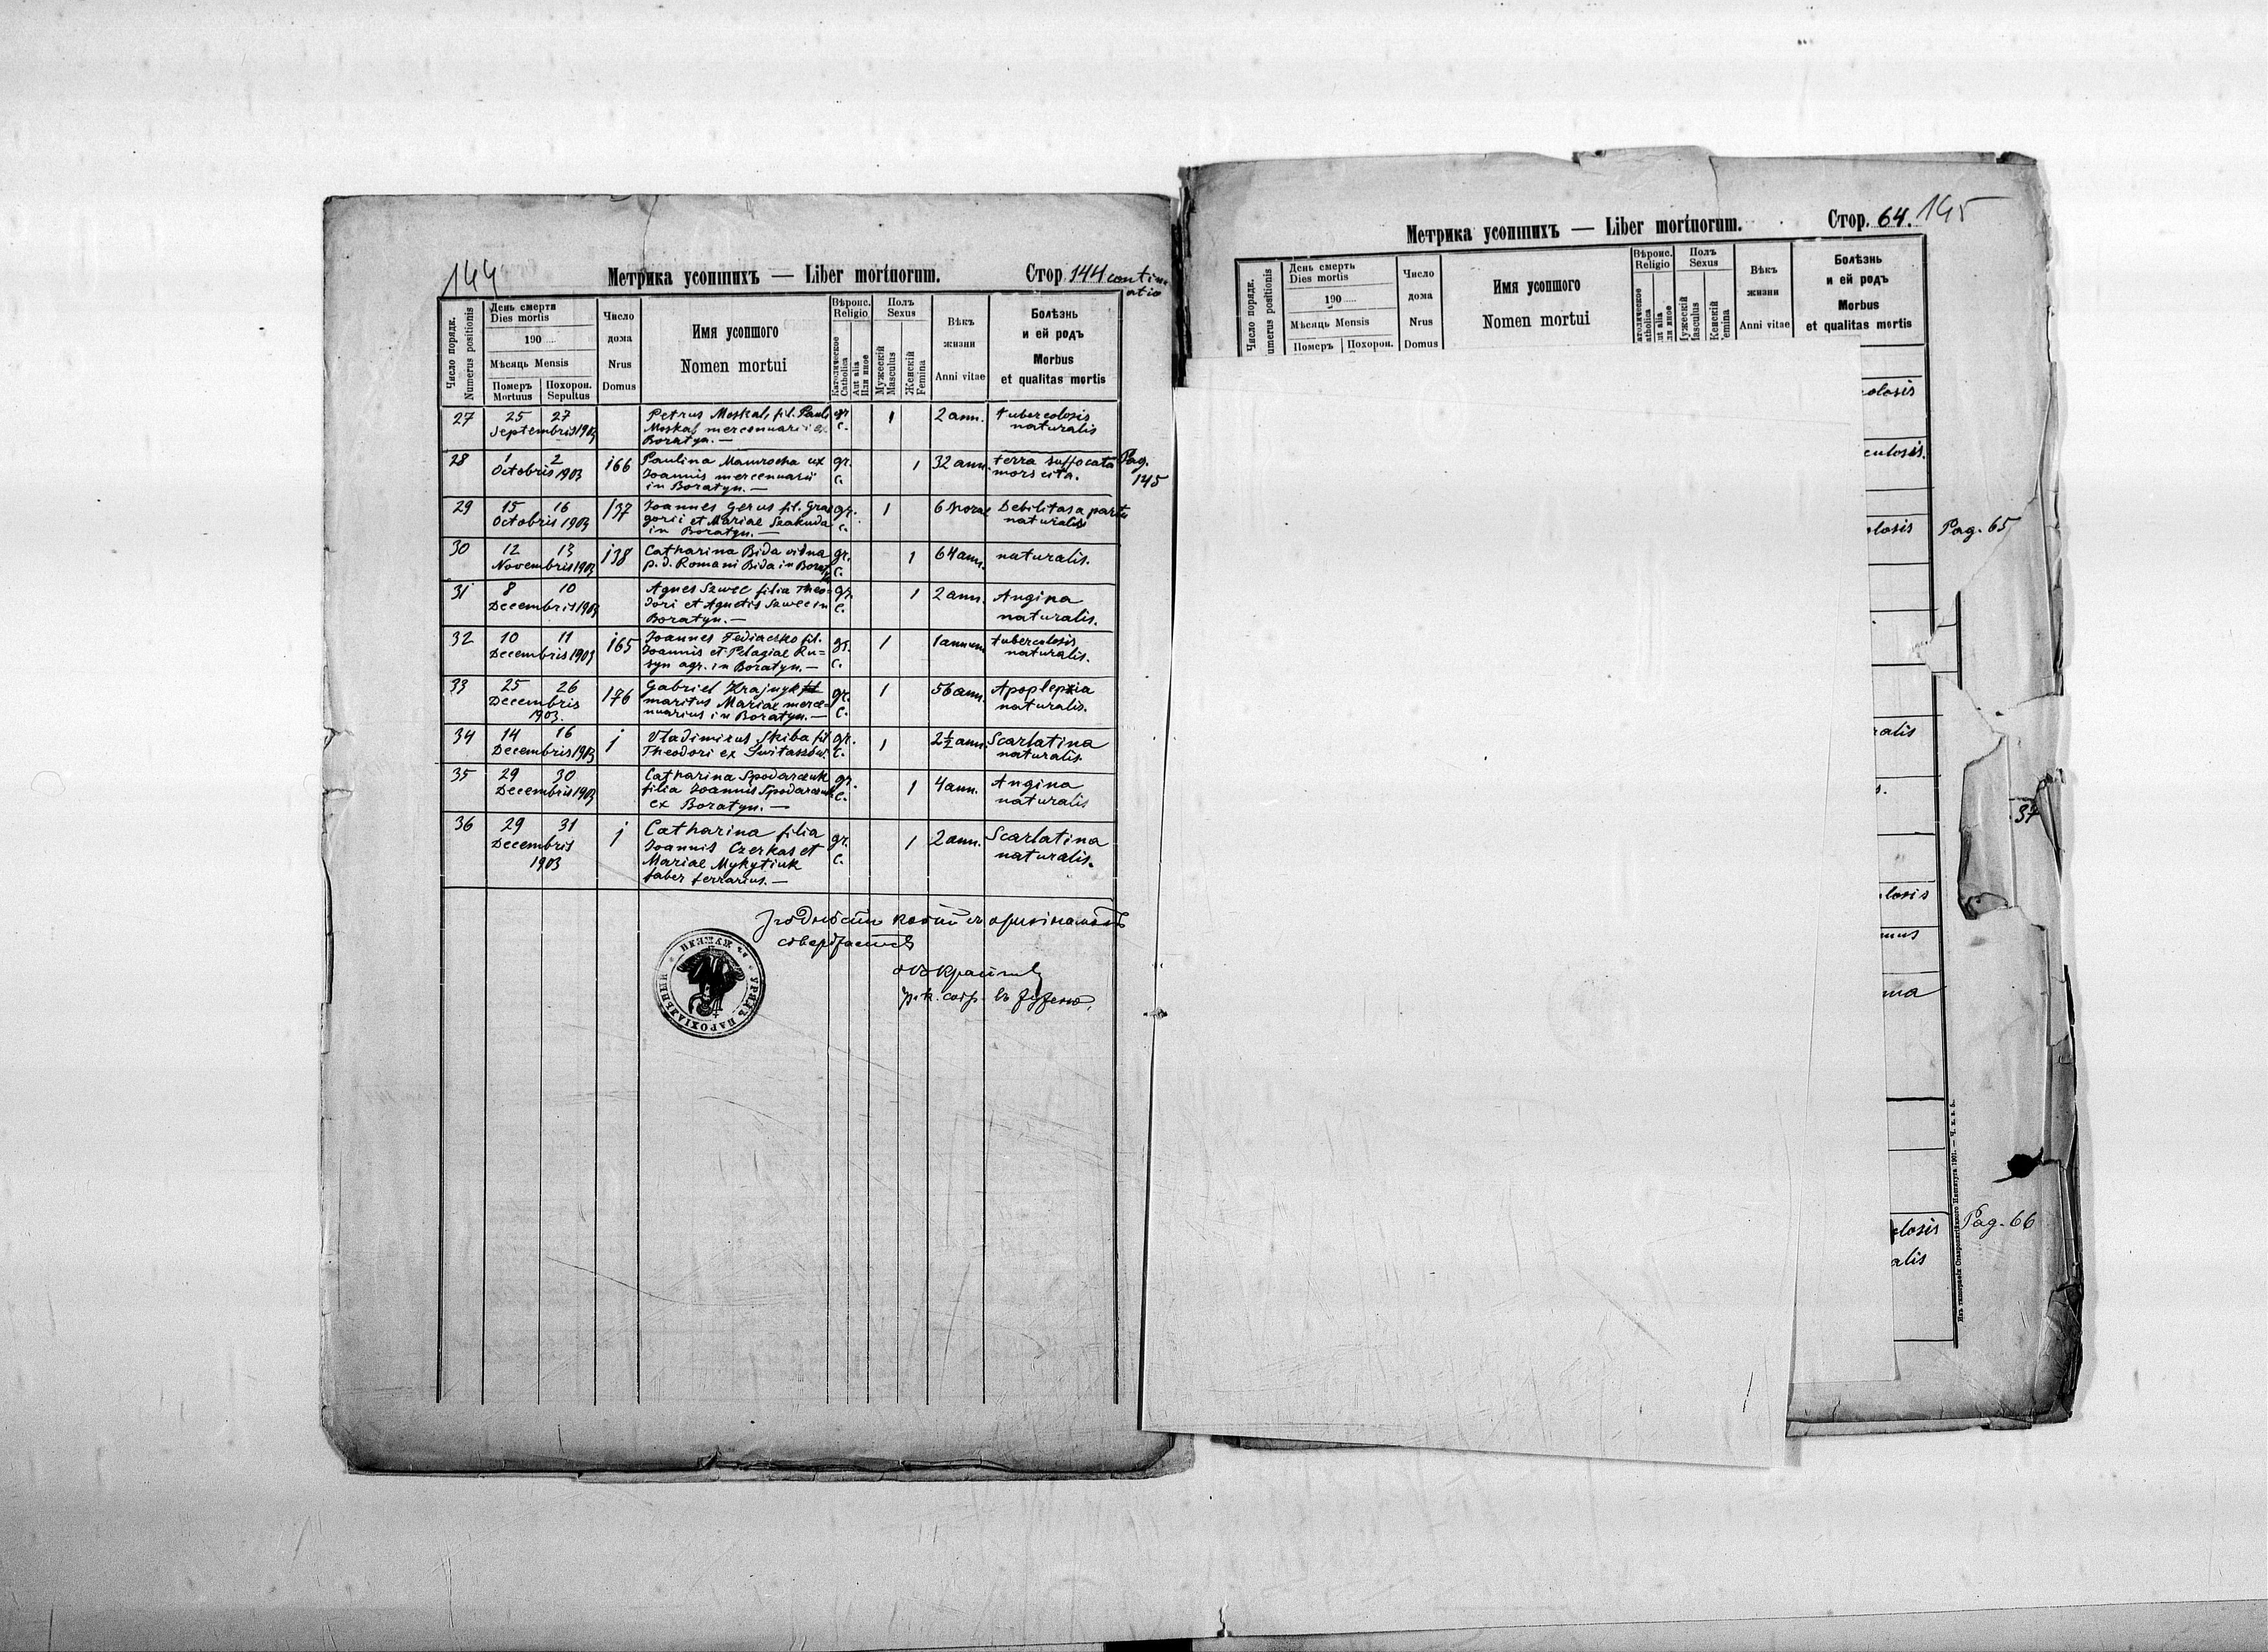 144
Метрика усопшихъ — Liber mortuorum.
Стор. 144 continu-
atio
Число порядк.
Numerus positionis
День смерти
Dies mortis
190
Мѣсяць Mensis
Померъ
Mortuus
Похорон.
Sepultus
Число
дома
Nrus
Domus
Имя усопшого
Nomen mortui
Вѣроис.
Religio
Католическое
Catholica
Aut alia
Или иное
Полъ
Sexus
Мужескій
Masculus
Женскій
Femina
Вѣкъ
жизни
Anni vitae
Болѣзнь
и ей родъ
Morbus
et qualitas mortis
27 25 27 Petrus Moskal, fil. Pauli gr. 1 2 ann. tubercolosis
Septembris 1903 Moskal mercennarii ex c. naturalis
Boratyn. —
28 1 2 166 Paulina Mamrocha ux gr. 1 32 ann. terra suffocata Pag.
Octobris 1903 Joannis mercennarii c. mors cita. 145
in Boratyn. —
29 15 16 137 Joannes Gerus fil. Gre- gr. 1 6 horae Debilitas a partu
Octobris 1903 gorii et Mariae Szakuda c. naturalis
in Boratyn. —
30 12 13 138 Catharina Bida vidua gr. 1 64 ann. naturalis.
Novembris 1903 p. d. Romani Bida in Boratyn c.
31 8 10 Agnes Szwec filia Theo- gr. 1 2 ann. Angina
Decembris 1903 dori et Agnetis Szwec in c. naturalis.
Boratyn. —
32 10 11 165 Joannes Fediaczko fil. gr. 1 1 annum tubercolosis
Decembris 1903 Joannis et Pelagiae Ru= c. naturalis.
syn agr. in Boratyn. —
33 25 26 176 Gabriel Krajnyk fil gr. 1 56 ann. Apoplexia
Decembris maritus Mariae merce= c. naturalis.
1903. nnarius in Boratyn. —
34 14 16 1 Vladimirus Skiba fil gr. 1 2½ ann. Scarlatina
Decembris 1903 Theodori ex c. naturalis.
35 29 30 Catharina Spodaraczuk gr. 1 4 ann. Angina
Decembris 1903 filia Joannis Spodaraczuk c. naturalis
ex Boratyn. —
36 29 31 1 Catharina filia gr. 1 2 ann. Scarlatina
Decembris Joannis Czerkas et c. naturalis.
1903 Mariae Mykytiuk
faber ferrarius. —
УРЯДЪ ПАРОХІАЛЬНЫЙ
Метрика усопшихъ — Liber mortuorum.
Стор. 64. 145
Число порядк.
umerus positionis
День смерть
Dies mortis
190
Мѣсяць Mensis
Померъ
Похорон.
Число
дома
Nrus
Domus
Имя усопшого
Nomen mortui
Вѣроис.
Religio
Полъ
Sexus
Вѣкъ
жизни
Anni vitae
Болѣзнь
и ей родъ
Morbus
et qualitas mortis
olosis
culosis.
olosis Pag. 65
ralis
37
losis
mus
ma
losis Pag. 66
alis